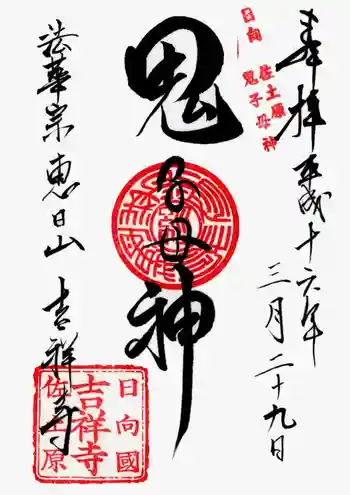 奉拝
平成十六年
三月二十九日
日向
佐土原
鬼子母神
鬼子母神
法華宗恵日山吉祥寺
日向國
吉祥寺
佐土原